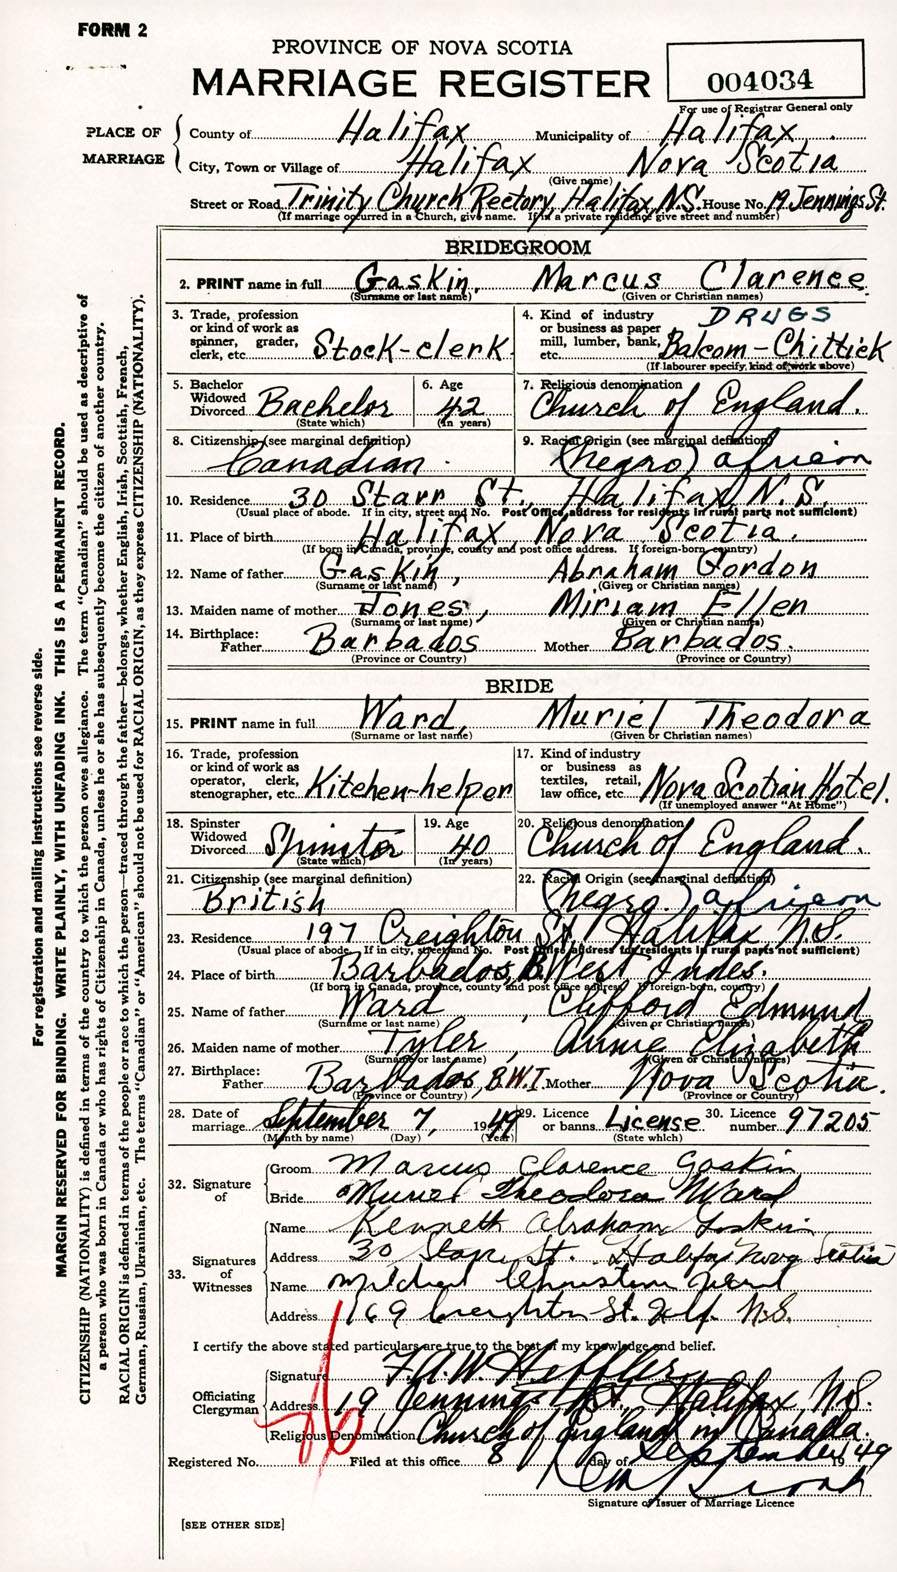 FORM 2
PROVINCE OF NOVA SCOTIA
MARRIAGE REGISTER
004034
For use of Registrar General only
PLACE OF MARRIAGE
County of Halifax Municipality of Halifax
City, Town or Village of Halifax Nova Scotia
(Give name)
Street or Road Trinity Church Rectory, Halifax, N.S. House No. 19 Jennings St.
(If marriage occurred in a Church, give name. If in a private residence give street and number)
BRIDEGROOM
2. PRINT name in full Gaskin, Marcus Clarence
(Surname or last name) (Given or Christian names)
3. Trade, profession or kind of work as spinner, grader, clerk, etc. Stock-clerk
4. Kind of industry or business as paper mill, lumber, bank, etc. DRUGS Balcom-Chittick
(If labourer specify, kind of work above)
5. Bachelor Widowed Divorced Bachelor
(State which)
6. Age 42
(In years)
7. Religious denomination Church of England.
8. Citizenship (see marginal definition) Canadian
9. Racial Origin (see marginal definition) (Negro) african
10. Residence 30 Starr St., Halifax, N.S.
(Usual place of abode. If in city, street and No. Post Office address for residents in rural parts not sufficient)
11. Place of birth Halifax, Nova Scotia.
(If born in Canada, province, county and post office address. If foreign-born, country)
12. Name of father Gaskin, Abraham Gordon
(Surname or last name) (Given or Christian names)
13. Maiden name of mother Jones, Miriam Ellen
(Surname or last name) (Given or Christian names)
14. Birthplace: Father Barbados Mother Barbados.
(Province or Country) (Province or Country)
BRIDE
15. PRINT name in full Ward, Muriel Theodora
(Surname or last name) (Given or Christian names)
16. Trade, profession or kind of work as operator, clerk, stenographer, etc. Kitchen-helper
17. Kind of industry or business as textiles, retail, law office, etc. Nova Scotian Hotel.
(If unemployed answer "At Home")
18. Spinster Widowed Divorced Spinster
(State which)
19. Age 40
(In years)
20. Religious denomination Church of England.
21. Citizenship (see marginal definition) British
22. Racial Origin (see marginal definition) (Negro) african
23. Residence 197 Creighton St. Halifax N.S.
(Usual place of abode. If in city, street and No. Post Office address for residents in rural parts not sufficient)
24. Place of birth Barbados, B. West Indes.
(If born in Canada, province, county and post office address. If foreign-born, country)
25. Name of father Ward, Clifford Edmund
(Surname or last name) (Given or Christian names)
26. Maiden name of mother Tyler, Annie Elizabeth
(Surname or last name) (Given or Christian names)
27. Birthplace: Father Barbados, B.W.I. Mother Nova Scotia.
(Province or Country) (Province or Country)
28. Date of marriage September 7, 1949 29. Licence or banns License 30. Licence number 97205
(Month by name) (Day) (Year) (State which)
32. Signature of
Groom Marcus Clarence Gaskin
Bride Muriel Theodora Ward
33. Signatures of Witnesses
Name Kenneth Abraham Gaskin
Address 30 Starr St. Halifax Nova Scotia
Name Mildred Christian Ward
Address 169 Creighton St. Hlf. N.S.
I certify the above stated particulars are true to the best of my knowledge and belief.
Officiating Clergyman
Signature F.A.W. Heffler
Address 19 Jennings St. Halifax, N.S.
Religious Denomination Church of England in Canada.
Registered No. Filed at this office 8 day of September 1949
Signature of Issuer of Marriage Licence
[SEE OTHER SIDE]
For registration and mailing instructions see reverse side.
MARGIN RESERVED FOR BINDING. WRITE PLAINLY, WITH UNFADING INK. THIS IS A PERMANENT RECORD.
CITIZENSHIP (NATIONALITY) is defined in terms of the country to which the person owes allegiance. The term "Canadian" should be used as descriptive of
a person who was born in Canada or who has rights of Citizenship in Canada, unless he or she has subsequently become the citizen of another country.
RACIAL ORIGIN is defined in terms of the people or race to which the person—traced through the father—belongs, whether English, Irish, Scottish, French,
German, Russian, Ukrainian, etc. The terms "Canadian" or "American" should not be used for RACIAL ORIGIN, as they express CITIZENSHIP (NATIONALITY).